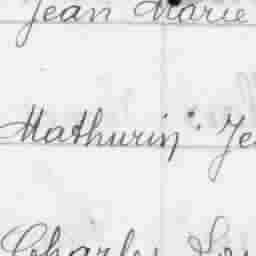 Jean Marie
Mathurin Je
Charles Lou